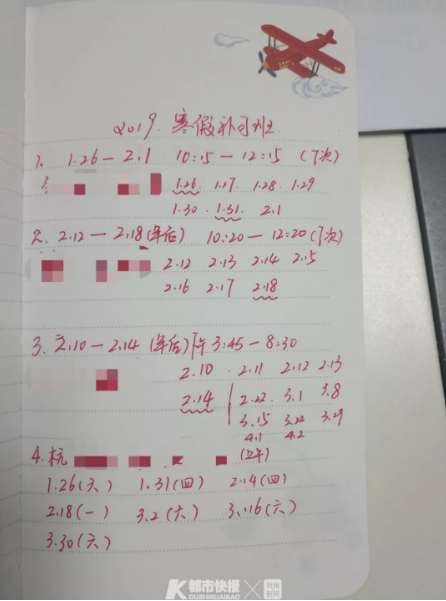 2019. 寒假补习班
1. 1.26 — 2.1 10:15 — 12:15 (7次)
1.26. 1.27. 1.28 1.29
1.30. 1.31. 2.1
2. 2.12 — 2.18 (年后) 10:20 — 12:20 (7次)
2.12 2.13 2.14 2.15
2.16 2.17 2.18
3. 2.10 — 2.14 (年后) 下午 3:45 — 8:30
2.10 2.11 2.12 2.13
2.14 2.22 3.1 3.8
3.15 3.22 3.29
4.1 4.2
4. 杭
1.26 (六) 1.31 (四) 2.14 (四)
2.18 (一) 3.2 (六) 3.16 (六)
3.30 (六)
K 都市快报 × 杭州新闻
DUSHIKUAIBAO